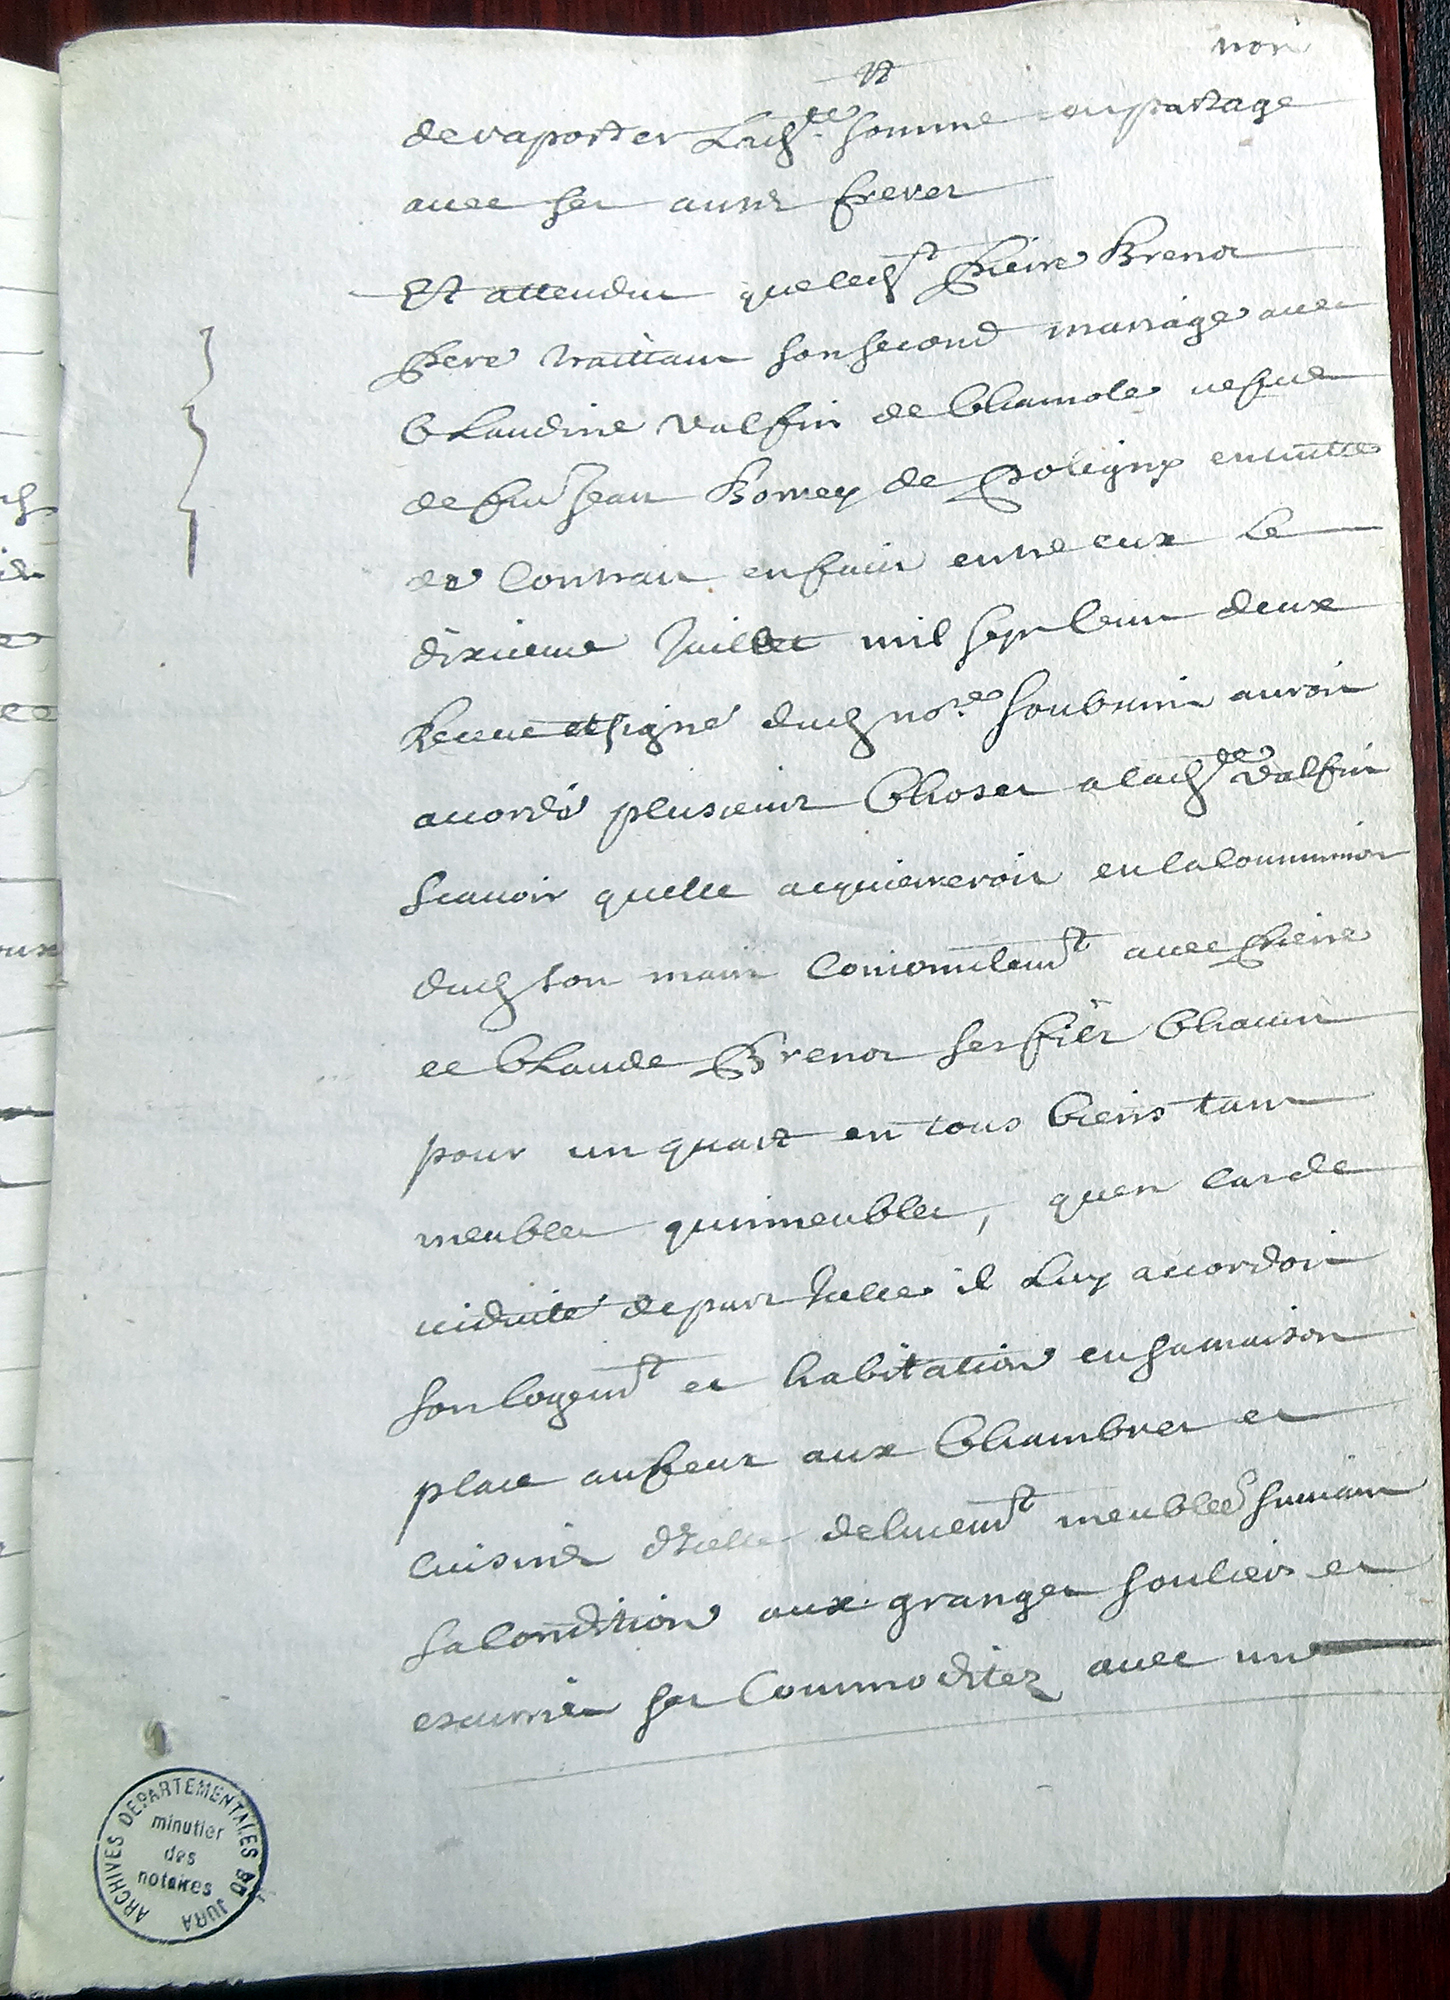 non
de raporter Ladte somme en partage
avec ses autres freres
Et attendu queledt Pierre Brenot
Pere traittant son second mariage avec
Claudine Valfin de Chamole vefve
de fut Jean de Poligny ensuitte
de Contrait enfait entre eux Le
dixieme Juillet mil sept Cent deux
Receue etsigné dud nore auroit
accordé plusieurs Choses a ladte Valfin
scavoir quelle acquierreroit en la Communion
dud son mari Conionctemt avec Pierre
et Claude Brenot ses fils Chacun
pour un quart en tous biens tant
meubles quimmeubles, quen cas de
viduité depart Icelle il Luy accordoit
son logemt et habitation en sa maison
place aufeux aux Chambres et
cuisine dIcelle deHuemt meublee suivant
sa Condition aux granges souliers et
escurries ses Commoditez avec un
ARCHIVES DEPARTEMENTALES DU JURA
minutier
des
notaires